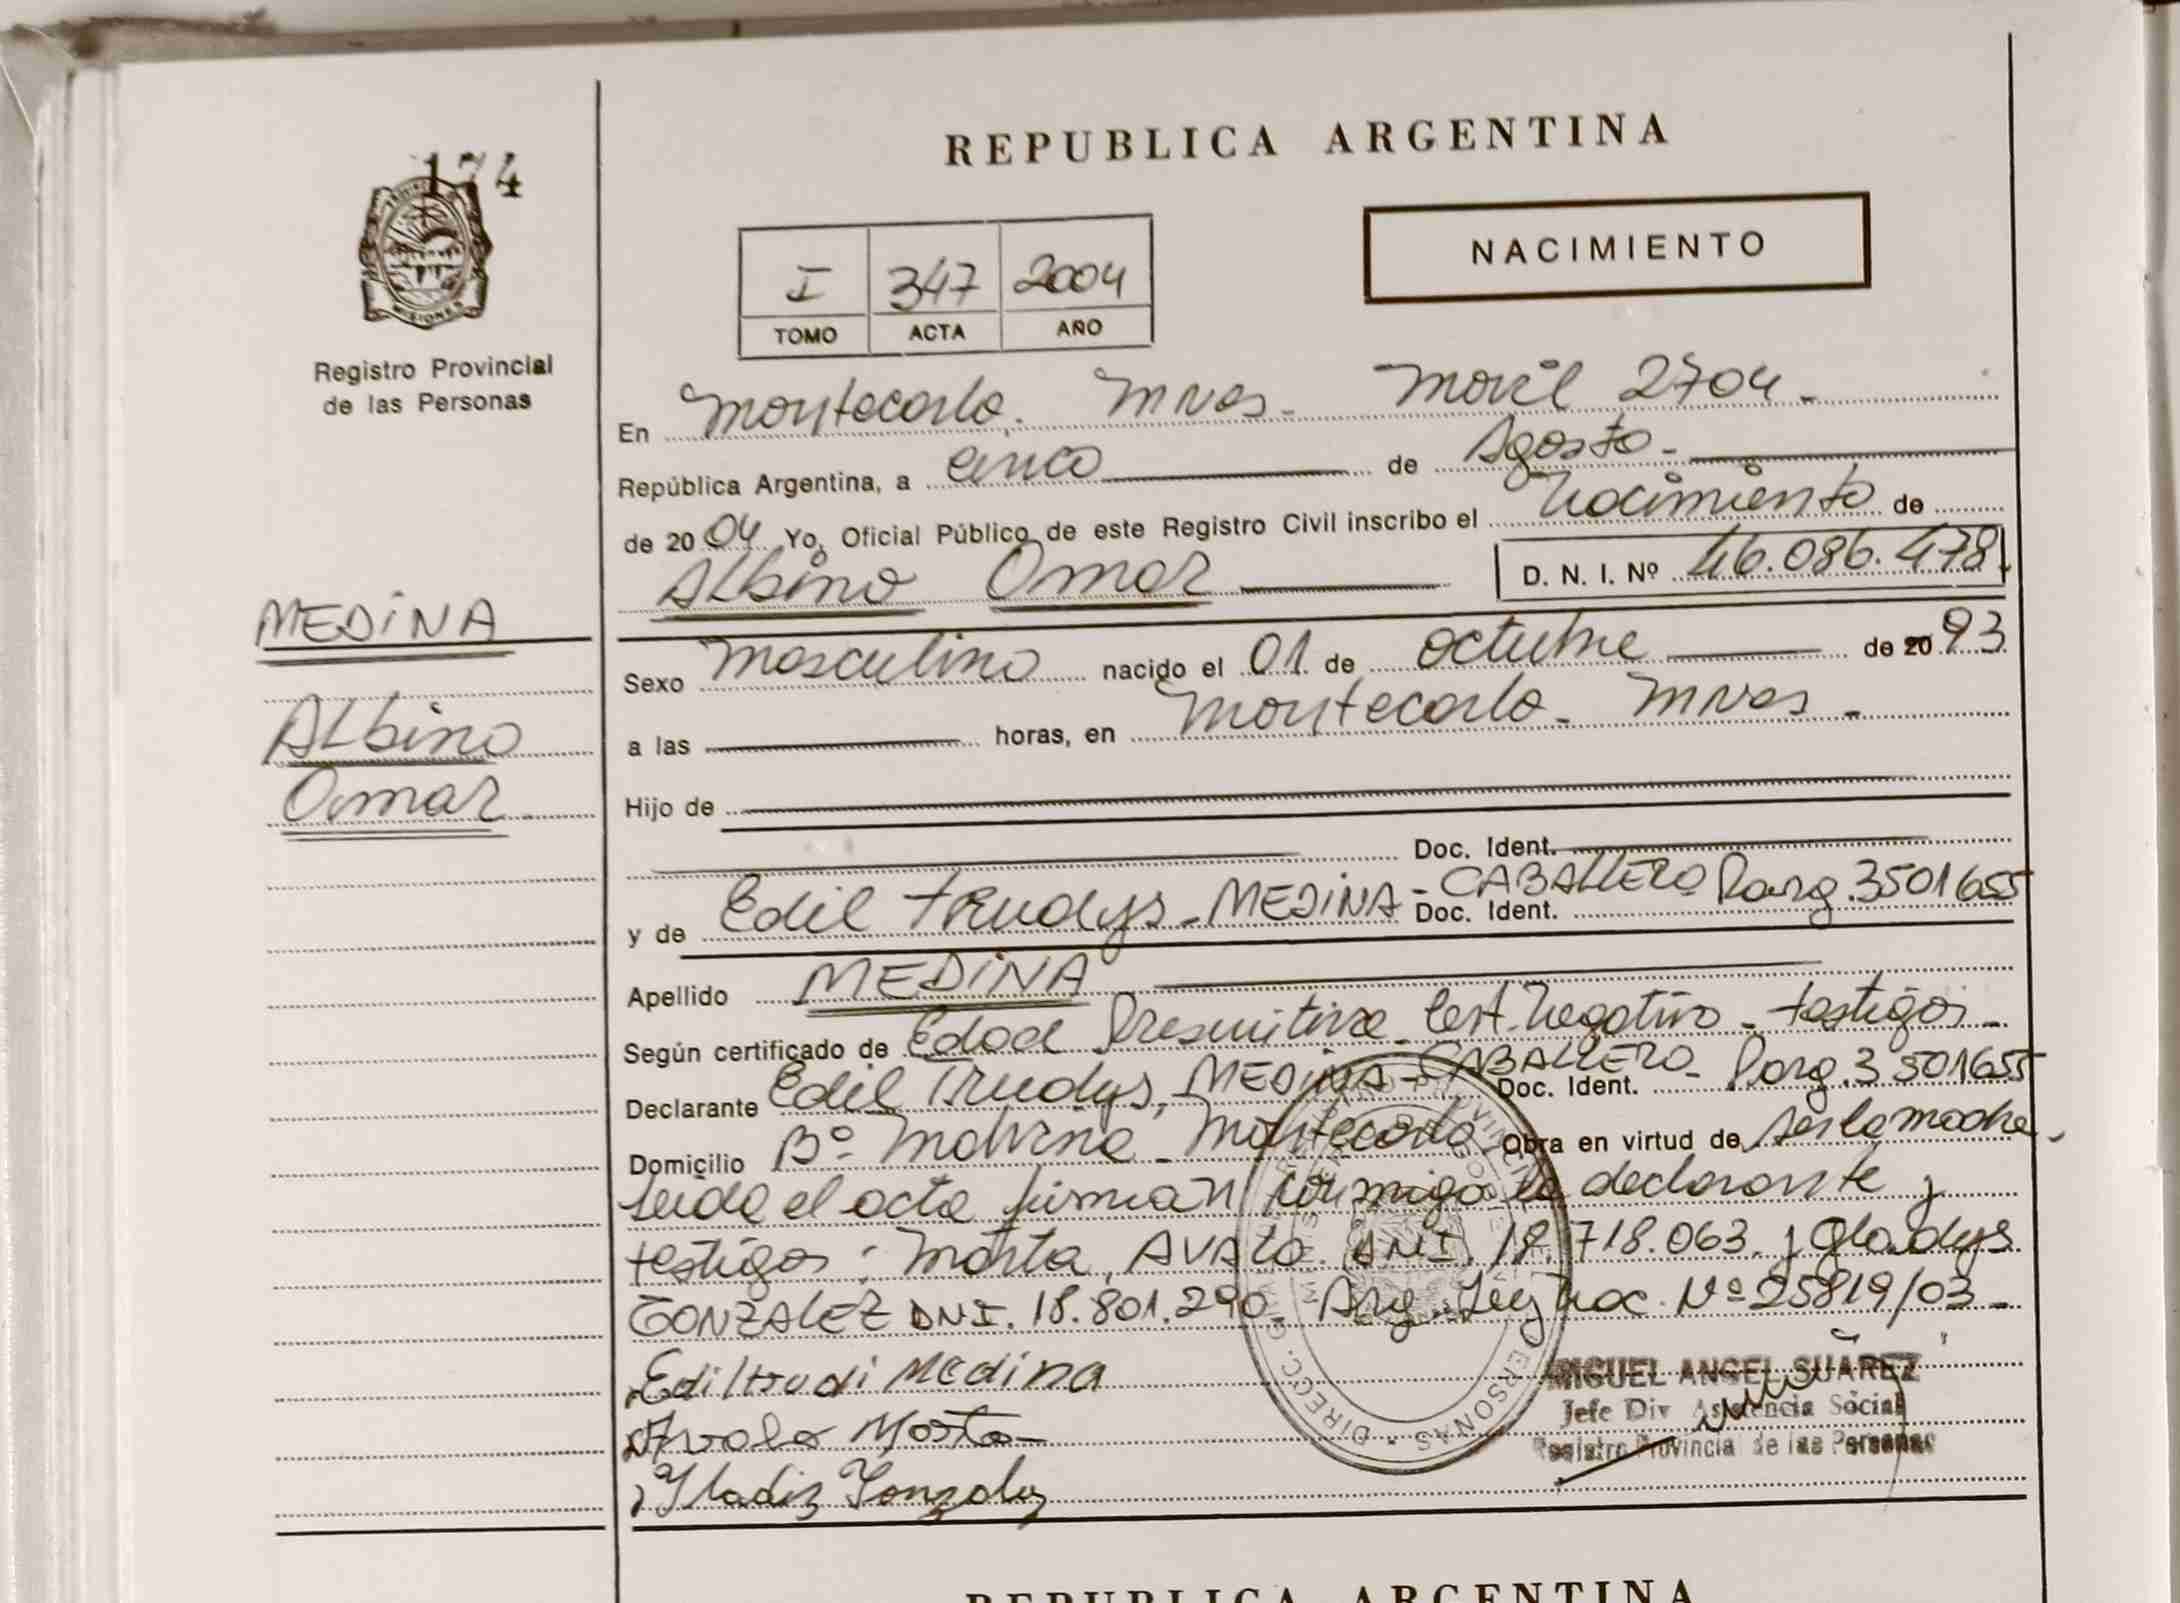 174
MISIONES
Registro Provincial
de las Personas
MEDINA
Albino
Omar
REPUBLICA ARGENTINA
I 347 2004
TOMO ACTA AÑO
NACIMIENTO
En Montecarlo. Mnes. Movil 2704.
República Argentina, a cinco de Agosto
de 2004 Yo, Oficial Público de este Registro Civil inscribo el Nacimiento de
Albino Omar D. N. I. Nº 46.086.478.
Sexo Masculino nacido el 01 de octubre de 20 93
a las horas, en Montecarlo - Mnes -
Hijo de
Doc. Ident.
y de Edil Trudys - MEDINA - CABALLERO Doc. Ident. Parg. 3501655
Apellido MEDINA
Según certificado de Edad Presuntiva Cert. Negativo - testigos -
Declarante Edil Trudys, MEDINA - CABALLERO - Doc. Ident. Parg. 3501655
Domicilio Bº Malvina - Montecarlo Obra en virtud de ser la madre.
Leida el acta firman conmigo la declarante y
testigos: Marta, AVALO. DNI. 18.718.063. y Gladys
GONZALEZ DNI. 18.801.290. Arg. Ley Nac. Nº 25819/03 -
Ediltrudi Medina
Avalo Marta
Gladiz Gonzalez
MIGUEL ANGEL SUÁREZ
Jefe Div Asistencia Social
Registro Provincial de las Personas
REPUBLICA ARGENTINA